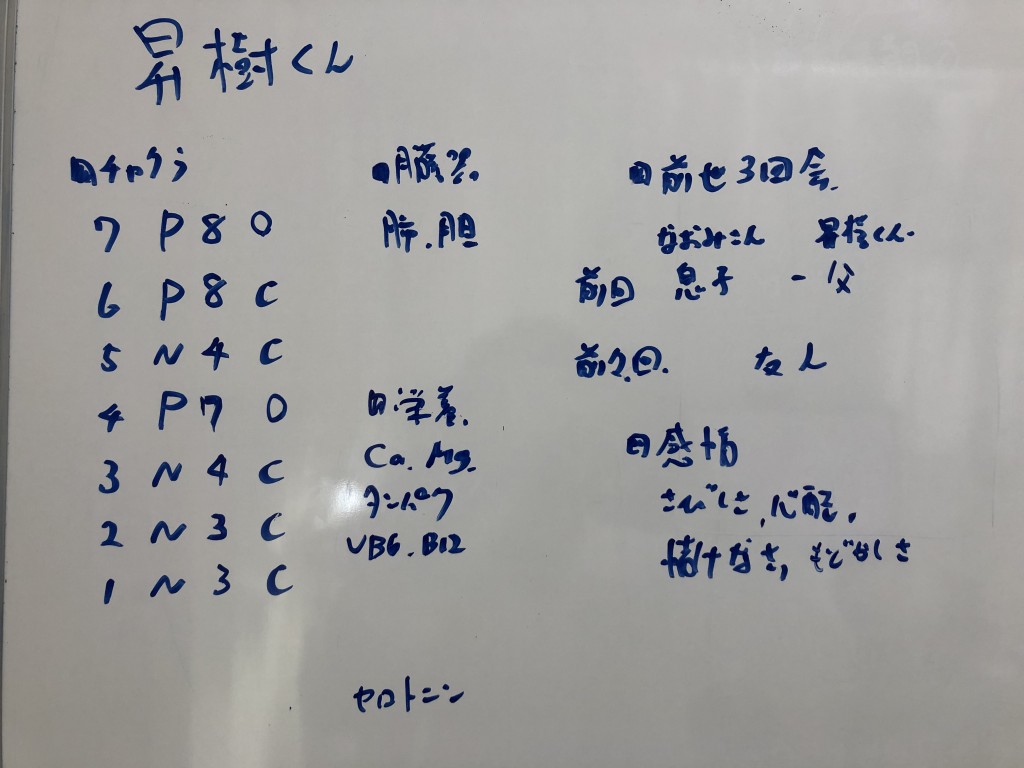 昇樹くん
■チャクラ
7 P 8 O
6 P 8 C
5 N 4 C
4 P 7 O
3 N 4 C
2 N 3 C
1 N 3 C
■臓器.
肝.胆
■栄養.
Ca. Mg.
タンパク
VB6. B12
セロトニン
■前世3回会.
なおみさん 昇樹くん.
前回 息子 - 父
前々回. 友人
■感情
さびしさ,心配,
情けなさ,もどかしさ